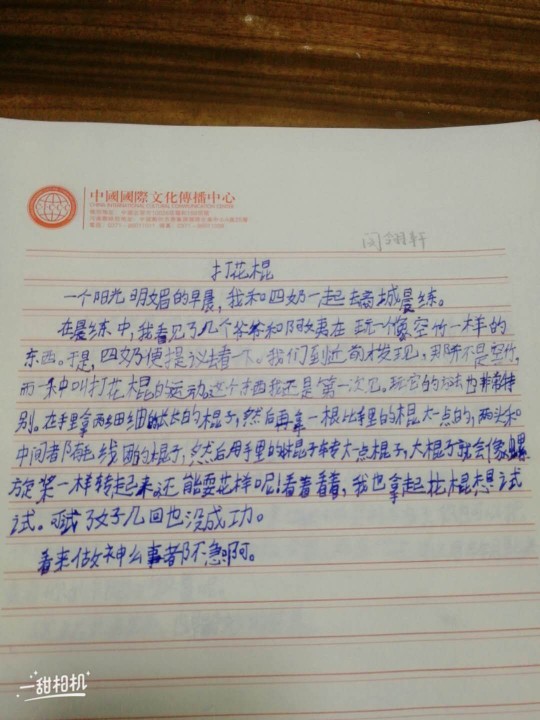 中國國際文化傳播中心
CHINA INTERNATIONAL CULTURAL COMMUNICATION CENTER
闵翊轩
打花棍
一个阳光明媚的早晨，我和四奶一起去商城晨练。
在晨练中，我看见了几个爷爷和阿姨在玩一个像空竹一样的
东西。于是，四奶便提议去看一下。我们到近前才发现，那不是空竹，
而一种叫打花棍的运动。这个东西我还是第一次见。玩它的方法也非常特
别。在手里拿两细细的长长的棍子，然后再拿一根比手里的棍大一点的，两头和
中间都有毛线圈的棍子，然后用手里的棍子转大一点棍子，大棍子就会像螺
旋桨一样转起来。还能耍花样呢！看着看着，我也拿起花棍想试
试。可试了好几回也没成功。
看来做神么事都不急啊。
一甜相机